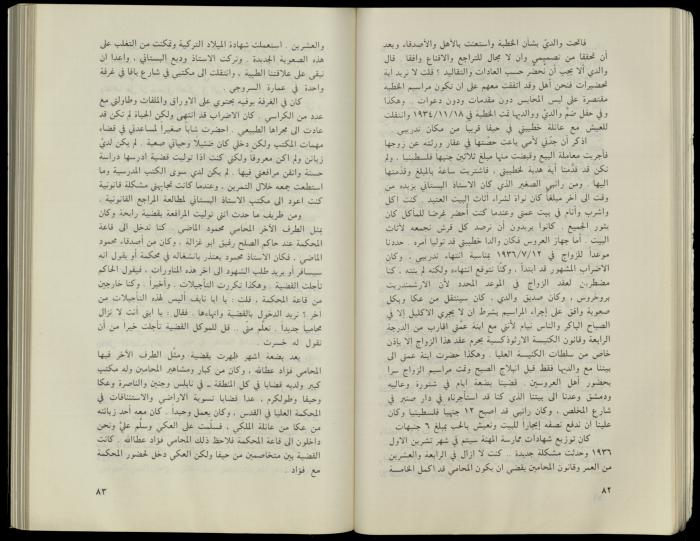 فاتحت والديّ بشأن الخطبة واستعنت بالأهل والأصدقاء وبعد
أن تحققا من تصميمي وان لا مجال للتراجع والاقتناع وافقا . قال
والدي ألا يجب أن نحضر حسب العادات والتقاليد ؟ قلت لا نريد أية
تحضيرات فنحن أهل وقد اتفقت معهم على ان تكون مراسيم الخطبة
مقتصرة على لبس المحابس دون مقدمات ودون دعوات . وهكذا
وفي حفل ضم والديّ ووالديها تمت الخطبة في ١٩٣٤/١١/١٨ وانتقلت
للعيش مع عائلة خطيبتي في حيفا قريبا من مكان تدريبي .
اذكر أن جدّتي لأمي باعت حصتها في عقار ورثته عن زوجها
فأجريت معاملة البيع وقبضت منها مبلغ ثلاثين جنيها فلسطينيا . ولم
نكن قد قدّمنا أية هدية لخطيبتي ، فاشتريت ساعة بالمبلغ وقدّمتها
اليها . ومن راتبي الصغير الذي كان الاستاذ البستاني يزيده من
وقت الى آخر مبلغا كان نواة لشراء أثاث البيت العتيد . كنت اكل
واشرب وأنام في بيت عمي وعندما كنت أحضر غرضا للمأكل كان
يثور الجميع . كانوا يريدون أن نرصد كل قرش نجمعه لأثاث
البيت . أما جهاز العروس فكان والدا خطيبتي قد توليا أمره . حددنا
موعدا للزواج في ١٩٣٦/٧/١٢ بمناسبة انتهاء تدريبي . وكان
الاضراب المشهور قد ابتدأ ، وكنّا نتوقع انتهاءه ولكنه لم ينته ، كنا
مضطرين لعقد الزواج في الموعد المحدد لأن الارشمندريت
بروخروس ، وكان صديق والدي ، كان سينتقل من عكا وبكل
صعوبة وافق على اجراء المراسيم بشرط ان لا يجري الاكليل إلا في
الصباح الباكر والناس نيام لأني مع ابنة عمّي اقارب من الدرجة
الرابعة وقانون الكنيسة الارثوذكسية يحرم عقد هذا الزواج إلا بإذن
خاص من سلطات الكنيسة العليا . وهكذا حضرت ابنة عمي الى
بيتنا مع والديها فقط قبل انبلاج الصبح وتمت مراسيم الزواج سرا
بحضور أهل العروسين . قضينا بضعة أيام في شتورة وعاليه
ودمشق وعدنا الى بيتنا الذي كنا قد استأجرناه في دار صنبر في
شارع المخلص ، وكان راتبي قد اصبح ١٢ جنيها فلسطينيا وكان
علينا ان ندفع نصفه إيجارا للبيت ونعيش بالحب بمبلغ ٦ جنيهات .
كان توزيع شهادات ممارسة المهنة سيتم في شهر تشرين الاول
١٩٣٦ وحدثت مشكلة جديدة .. كنت لا ازال في الرابعة والعشرين
من العمر وقانون المحامين يقضي ان يكون المحامي قد اكمل الخامسة
٨٢
والعشرين . استعملت شهادة الميلاد التركية وتمكنت من التغلب على
هذه الصعوبة الجديدة . وتركت الاستاذ وديع البستاني ، واعدا ان
نبقى على علاقتنا الطيبة ، وانتقلت الى مكتبي في شارع يافا في غرفة
واحدة في عمارة السروجي .
كان في الغرفة بوفيه يحتوي على الاوراق والملفات وطاولتي مع
عدد من الكراسي . كان الاضراب قد انتهى ولكن الحياة لم تكن قد
عادت الى مجراها الطبيعي . احضرت شابا صغيرا لمساعدتي في قضاء
مهمات المكتب ولكن دخلي كان ضئيلا وحياتي صعبة . لم يكن لديّ
زبائن ولم اكن معروفا ولكني كنت اذا توليت قضية أدرسها دراسة
حسنة واتقن مرافعتي فيها . لم يكن لدي سوى الكتب المدرسية وما
استطعت جمعه خلال التمرين ، وعندما كانت تجابهني مشكلة قانونية
كنت اعود الى مكتب الاستاذ البستاني لمطالعة المراجع القانونية .
ومن طريف ما حدث انني توليت المرافعة بقضية رابحة وكان
يمثل الطرف الآخر المحامي محمود الماضي . كنا ندخل الى قاعة
المحكمة عند حاكم الصلح رفيق ابو غزالة ، وكان من أصدقاء محمود
الماضي ، فكان الاستاذ محمود يعتذر بانشغاله في محكمة أو يقول انه
سيسافر أو يريد طلب الشهود الى آخر هذه المناورات ، فيقول الحاكم
تأجلت القضية . وهكذا تكررت التأجيلات . وأخيراً . وكنا خارجين
من قاعة المحكمة ، قلت : يا ابا نايف أليس لهذه التأجيلات من
آخر ؟ نريد الدخول بالقضية وانهاءها . فقال : يا ابني أنت لا تزال
محامياً جديداً . تعلّم مني .. قل للموكل القضية تأجلت خيرا من أن
تقول له خسرت .
بعد بضعة اشهر ظهرت بقضية ومثّل الطرف الآخر فيها
المحامي فؤاد عطالله ، وكان من كبار ومشاهير المحامين وله مكتب
كبير ولديه قضايا في كل المنطقة ـ في نابلس وجنين والناصرة وعكا
وحيفا وطولكرم ، عدا قضايا تسوية الاراضي والاستئنافات في
المحكمة العليا في القدس ، وكان يعمل وحيداً . كان معه أحد زبائنه
من عكا من عائلة الملكي ، فسلّمت على العكي وسلّم عليّ ونحن
داخلون الى قاعة المحكمة فلاحظ ذلك المحامي فؤاد عطالله . كانت
القضية بين متخاصمين من حيفا ولكن العكي دخل لحضور المحكمة
مع فؤاد .
٨٣